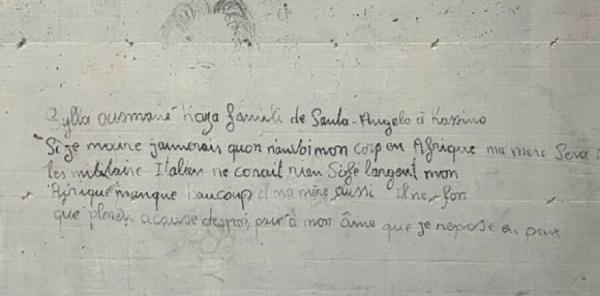 Sylla ousmane Kaza famili de Santa-Angelo à Kassino
Si je moure jaimerais quon nauvoi mon corp en Afrique ma mere Sera
les militaire Italien ne conait rien Sofé largent mon
Afrique manque baucoup et ma mère aussi Il ne fon
que pleren a cause despoi, à mon âme que je repose en paix